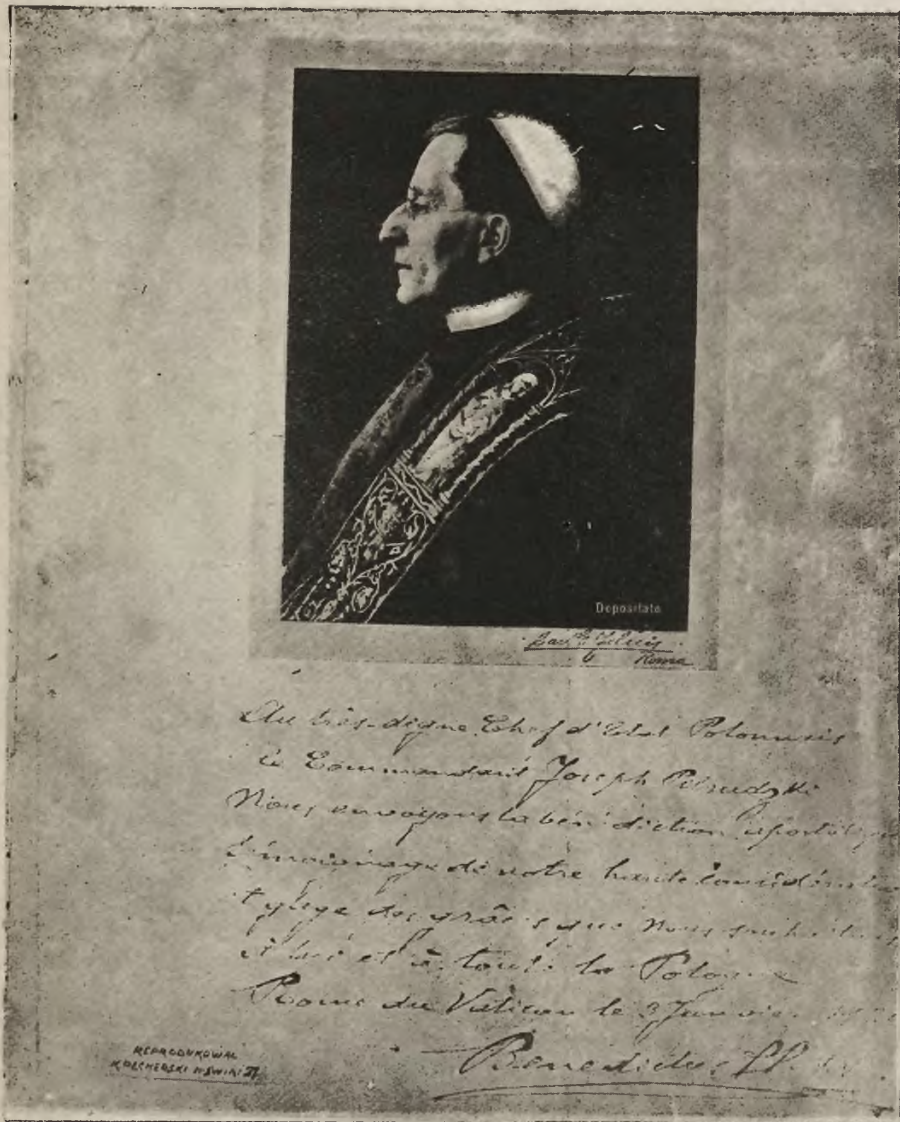 Depositato
Roma
Au très-digne Chef d'Etat Polonais
le Commandant Joseph
Nous envoyons la bénédiction
témoignage de notre haute
gage des grâces que Nous
à lui et à toute la Pologne
Rome du Vatican le 3 Janvier
Benedictus PP.
REPRODUKOWAŁ